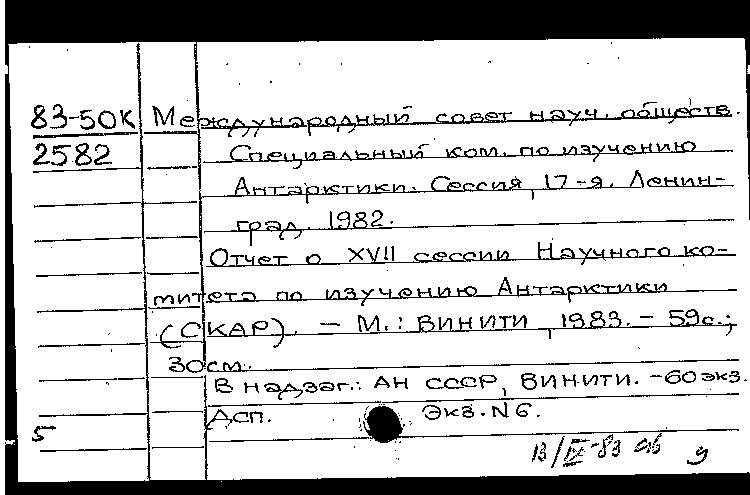 83-50К Международный совет науч. обществ.
2582 Специальный ком. по изучению
Антарктики. Сессия, 17-я. Ленин-
град. 1982.
Отчет о XVII сессии Научного ко-
митета по изучению Антарктики
(СКАР). - М.: ВИНИТИ, 1983. - 59с.;
30см.
В надзаг.: АН СССР, ВИНИТИ. - 60экз.
Дсп. Экз. N 6.
5
13/IX-83